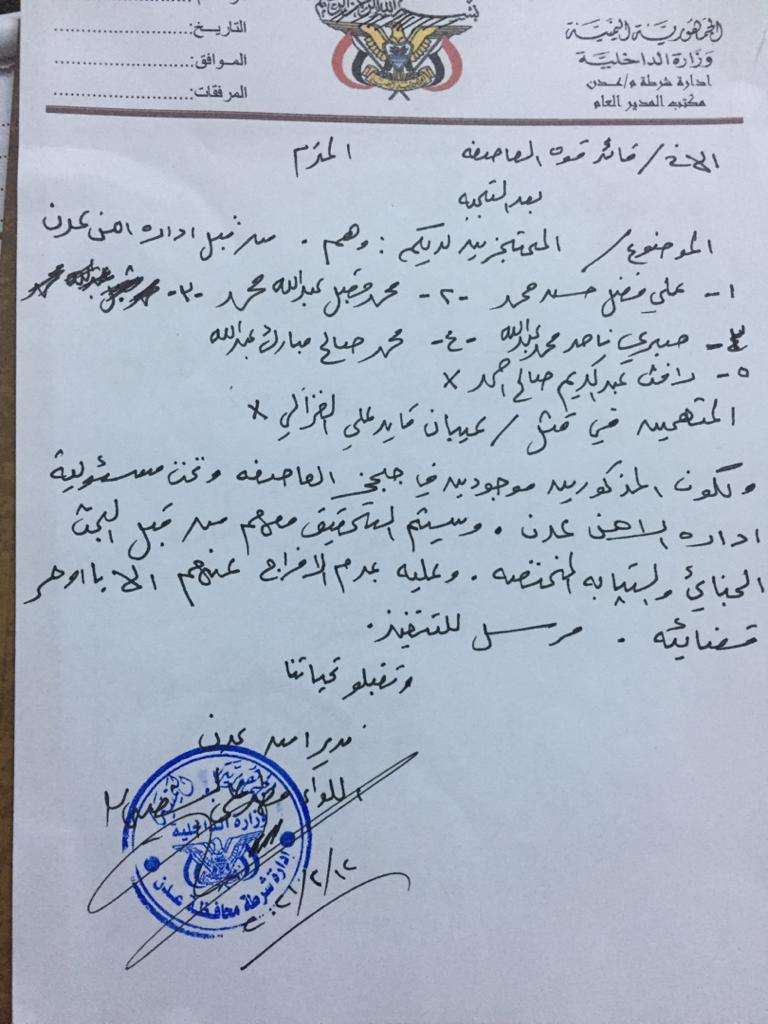 بسم الله الرحمن الرحيم
الجمهورية اليمنية
وزارة الداخلية
ادارة شرطة م/عدن
مكتب المدير العام
التاريخ:
الموافق:
المرفقات:
الاخ / قائد قوة العاصفه المحترم
بعد التحيه
الموضوع / المحتجزين لديكم : وهم . من قبل اداره امن عدن
١- علي فضل حسن محمد -٢- محمد فضل عبدالله محمد -٣-
٣- صبري ناصر محمد عبدالله -٤- محمد صالح مبارك عبدالله
٥- رافت عبدالكريم صالح احمد x
المتهمين في قتل / عيبان قايد علي الغزالي x
ولكون المذكورين موجودين في العاصفه وتحت مسئولية
اداره امن عدن . وسيتم التحقيق معهم من قبل البحث
الجنائي والنيابه المختصه . وعليه بعدم الافراج عنهم الا باوامر
قضائيه . مرسل للتنفيذ .
وتقبلو تحياتنا
مدير امن عدن
اللواء
وزارة الداخلية
ادارة شرطة محافظة عدن